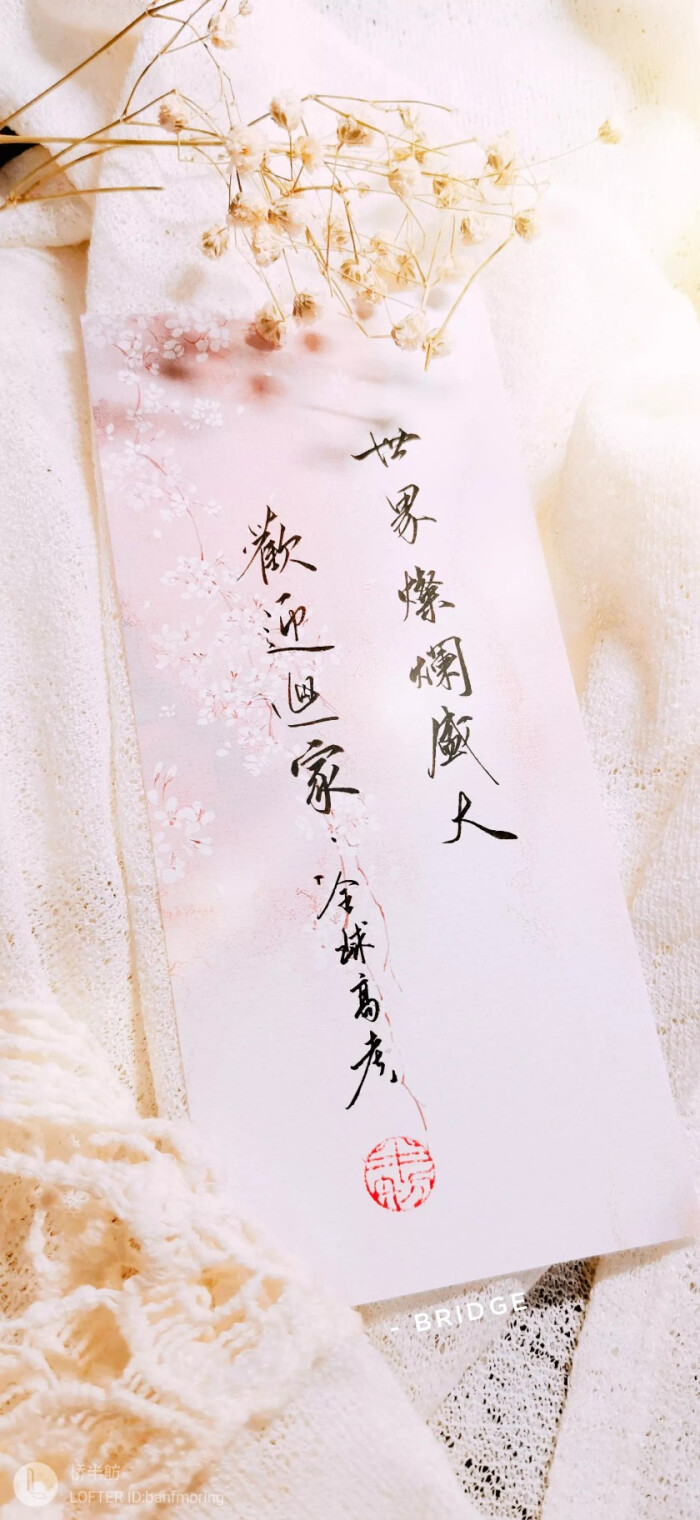 世界燦爛盛大
歡迎迴家·「全球高考」
半舫
- BRIDGE
桥半舫
LOFTER ID:banfmoring